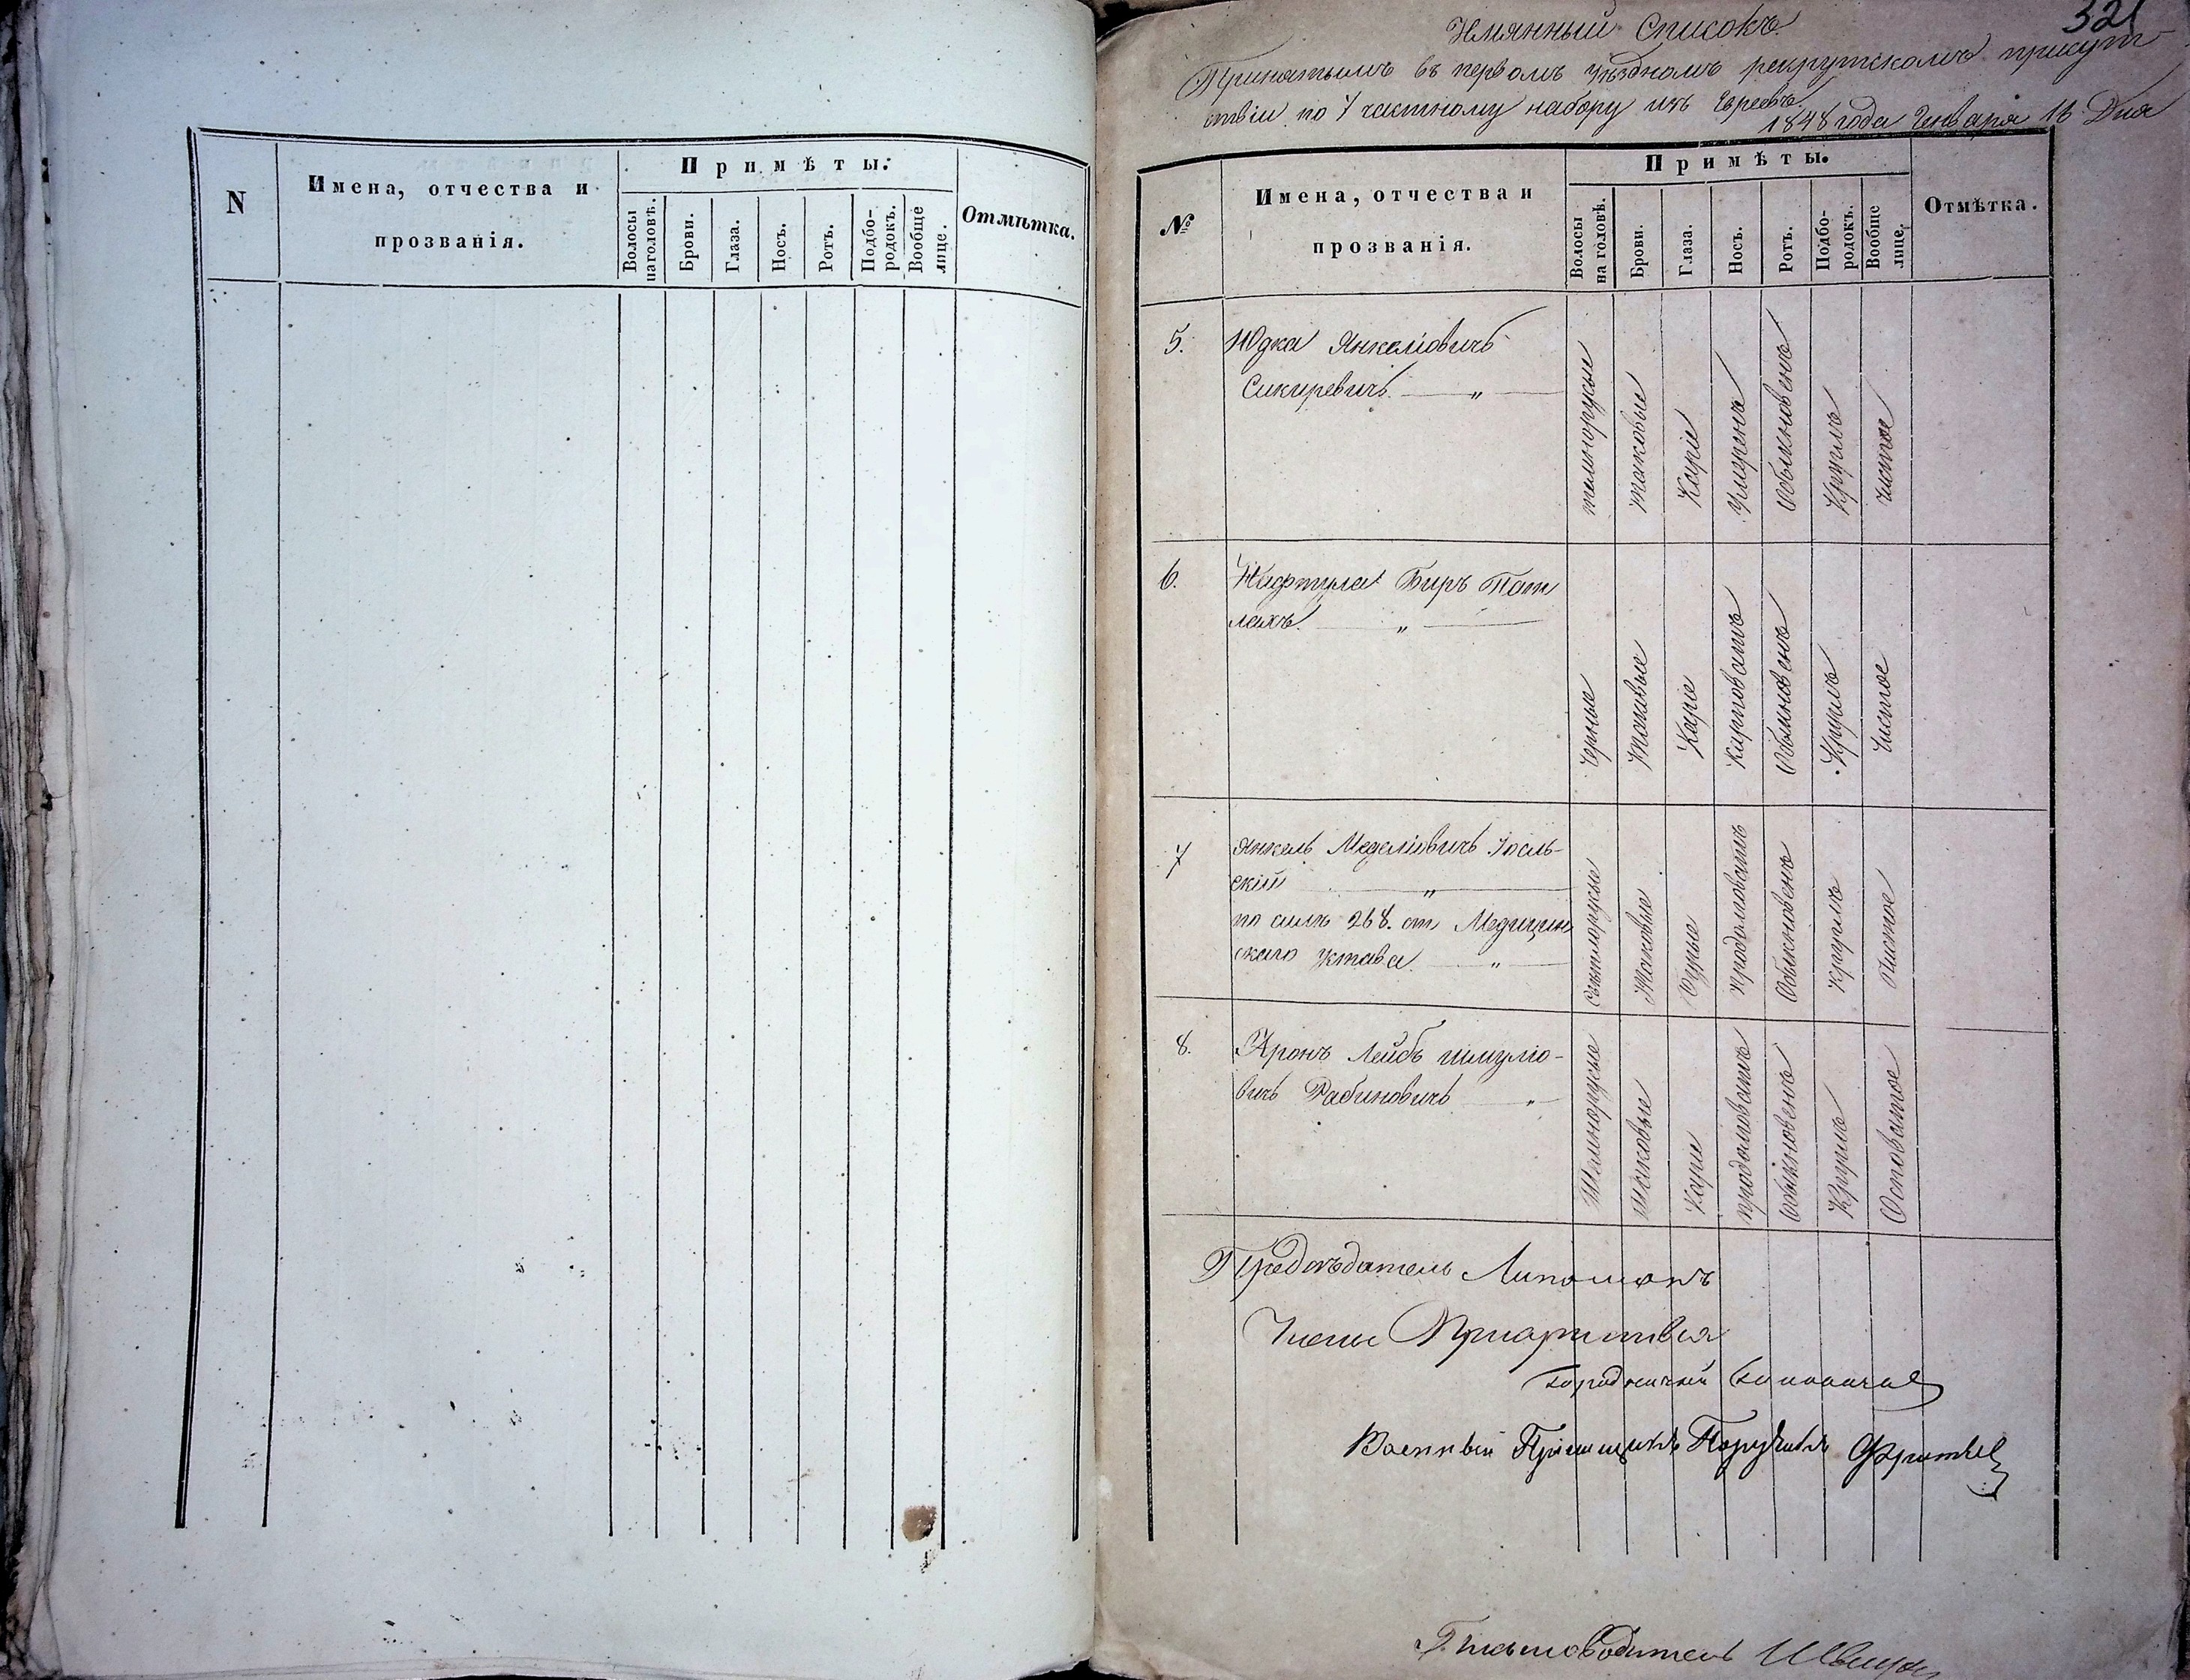 N
Имена, отчества и
прозванія.
Примѣты:
Волосы
наголовѣ.
Брови.
Глаза.
Носъ.
Ротъ.
Подбо-
родокъ.
Вообще
лице.
Отмѣтка.
321
Имянный Списокъ
Принятымъ въ первомъ уѣздномъ рекрутскомъ присут-
ствіи по 7 частному набору изъ Евреевъ
1848 года Генваря 16 Дня
№
Имена, отчества и
прозванія.
Примѣты.
Волосы
на головѣ.
Брови.
Глаза.
Носъ.
Ротъ.
Подбо-
родокъ.
Вообще
лице.
Отмѣтка.
5.
Юдка Янкеліовичъ
Сикиревичъ. — „ —
темнорусые
таковые
Каріе
умеренъ
обыкновенъ
Круглъ
чистое
6.
Нафтула Беръ Пот
лахъ. — „ —
Черные
таковые
Каріе
Обыкновенъ
Круглъ
Чистое
7
Янкель Менделіовичъ
скій — „ —
по силѣ 268. ст. Медицин
скаго устава — „ —
Свѣтлорусые
Таковые
Сурые
продолговатъ
Обыкновенъ
круглъ
Чистое
8.
Аронъ Лейбъ Шмуліо-
вичъ Рабиновичъ — „
Темнорусые
таковые
Каріе
продолговатъ
обыкновенъ
Круглъ
Осповатое
Предсѣдатель
Члены Присутствія
Городничий
Военный Пріемщикъ Поручикъ
Письмоводитель